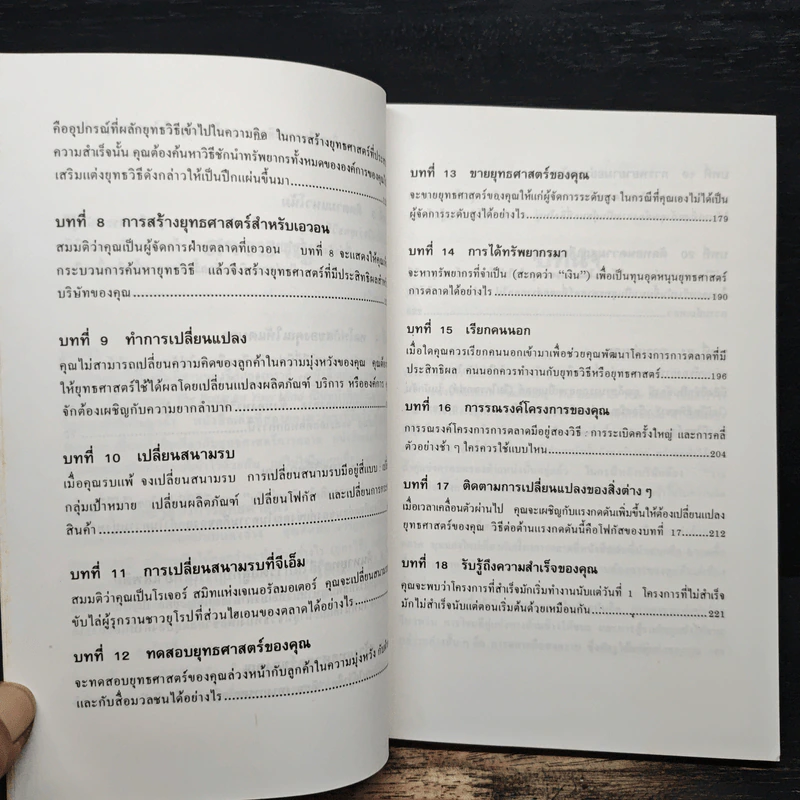 คืออุปกรณ์ที่ผลักยุทธวิธีเข้าไปในความคิด ในการสร้างยุทธศาสตร์ที่ประสบ
ความสำเร็จนั้น คุณต้องค้นหาวิธีชักนำทรัพยากรทั้งหมดขององค์การของคุณ
เสริมแต่งยุทธวิธีดังกล่าวให้เป็นปึกแผ่นขึ้นมา
บทที่ 8 การสร้างยุทธศาสตร์สำหรับเอวอน
สมมติว่าคุณเป็นผู้จัดการฝ่ายตลาดที่เอวอน บทที่ 8 จะแสดงให้คุณ
กระบวนการค้นหายุทธวิธี แล้วจึงสร้างยุทธศาสตร์ที่มีประสิทธิผลสำ
บริษัทของคุณ
บทที่ 9 ทำการเปลี่ยนแปลง
คุณไม่สามารถเปลี่ยนความคิดของลูกค้าในความมุ่งหวังของคุณ คุณต้อง
ให้ยุทธศาสตร์ใช้ได้ผลโดยเปลี่ยนแปลงผลิตภัณฑ์ บริการ หรือองค์การ
จักต้องเผชิญกับความยากลำบาก
บทที่ 10 เปลี่ยนสนามรบ
เมื่อคุณรบแพ้ จงเปลี่ยนสนามรบ การเปลี่ยนสนามรบมีอยู่สี่แบบ : เปลี่ยน
กลุ่มเป้าหมาย เปลี่ยนผลิตภัณฑ์ เปลี่ยนโฟกัส และเปลี่ยนการ
สินค้า
บทที่ 11 การเปลี่ยนสนามรบที่จีเอ็ม
สมมติว่าคุณเป็นโรเจอร์ สมิทแห่งเจเนอรัลมอเตอร์ คุณจะเปลี่ยนสนาม
ขับไล่ผู้รุกรานชาวยุโรปที่ส่วนไฮเอนของตลาดได้อย่างไร
บทที่ 12 ทดสอบยุทธศาสตร์ของคุณ
จะทดสอบยุทธศาสตร์ของคุณล่วงหน้ากับลูกค้าในความมุ่งหวัง
และกับสื่อมวลชนได้อย่างไร
บทที่ 13 ขายยุทธศาสตร์ของคุณ
จะขายยุทธศาสตร์ของคุณให้แก่ผู้จัดการระดับสูง ในกรณีที่คุณเองไม่ได้เป็น
ผู้จัดการระดับสูงได้อย่างไร 179
บทที่ 14 การได้ทรัพยากรมา
จะหาทรัพยากรที่จำเป็น (สะกดว่า “เงิน”) เพื่อเป็นทุนอุดหนุนยุทธศาสตร์
การตลาดได้อย่างไร 190
บทที่ 15 เรียกคนนอก
เมื่อใดคุณควรเรียกคนนอกเข้ามาเพื่อช่วยคุณพัฒนาโครงการการตลาดที่มี
ประสิทธิผล คนนอกควรทำงานกับยุทธวิธีหรือยุทธศาสตร์ 196
บทที่ 16 การรณรงค์โครงการของคุณ
การรณรงค์โครงการการตลาดมีอยู่สองวิธี : การระเบิดครั้งใหญ่ และการคลี่
ตัวอย่างช้า ๆ ใครควรใช้แบบไหน 204
บทที่ 17 ติดตามการเปลี่ยนแปลงของสิ่งต่าง ๆ
เมื่อเวลาเคลื่อนตัวผ่านไป คุณจะเผชิญกับแรงกดดันเพิ่มขึ้นให้ต้องเปลี่ยนแปลง
ยุทธศาสตร์ของคุณ วิธีต่อต้านแรงกดดันนี้คือโฟกัสของบทที่ 17 212
บทที่ 18 รับรู้ถึงความสำเร็จของคุณ
คุณจะพบว่าโครงการที่สำเร็จมักเริ่มทำงานนับแต่วันที่ 1 โครงการที่ไม่สำเร็จ
มักไม่สำเร็จนับแต่ตอนเริ่มต้นด้วยเหมือนกัน 221